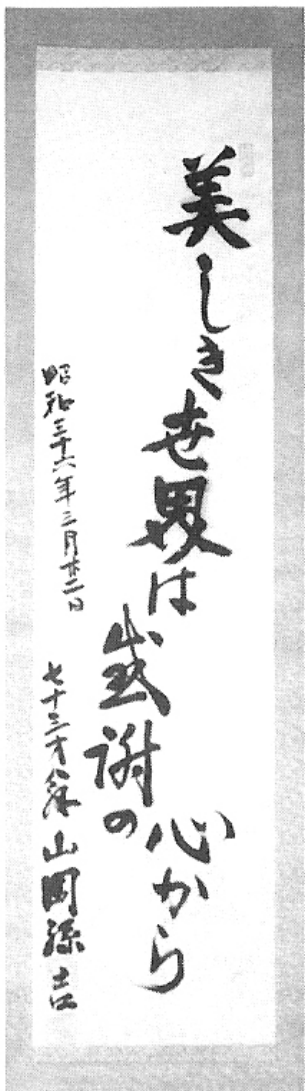 美しき世界は感謝の
心から
昭和三十六年三月廿二日 七十三才翁 山岡孫吉